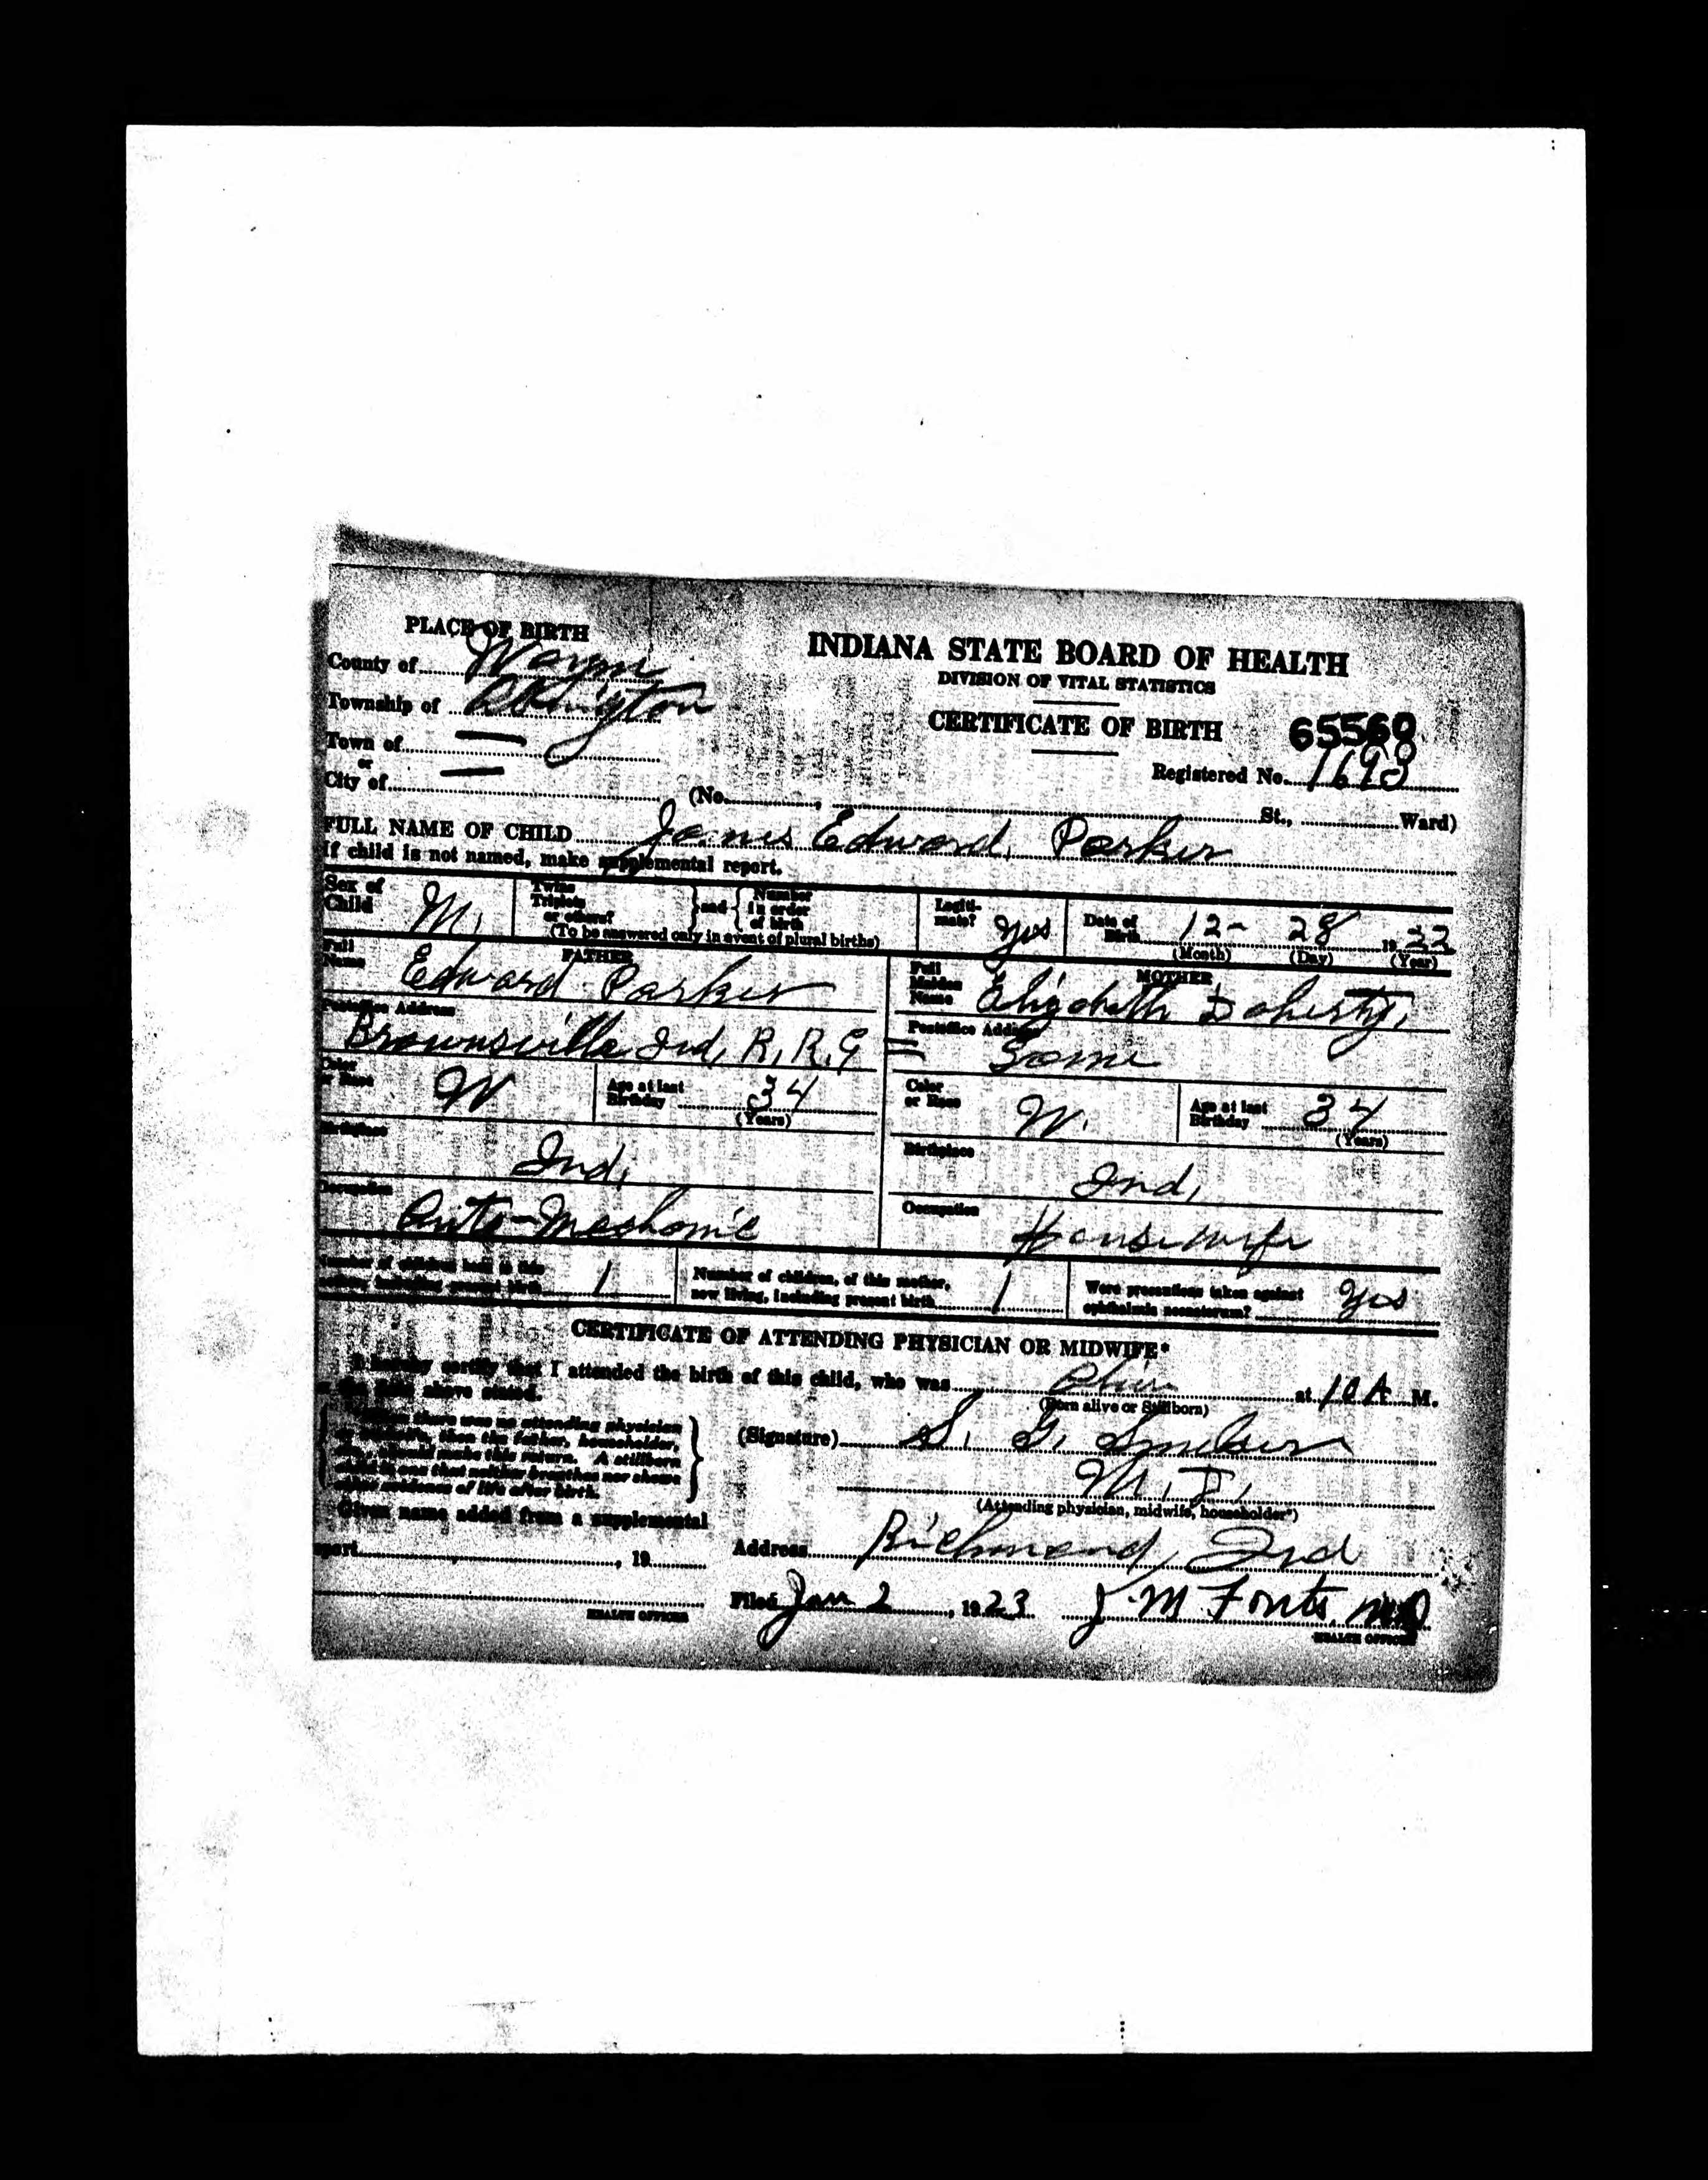 PLACE OF BIRTH
County of Wayne
Township of Abington
Town of —
or
City of —
INDIANA STATE BOARD OF HEALTH
DIVISION OF VITAL STATISTICS
CERTIFICATE OF BIRTH 65560
Registered No. 1693
(No. , St., Ward)
FULL NAME OF CHILD James Edward Parker
If child is not named, make supplemental report.
Sex of Child M.
Twins Triplets or others? } and { Number in order of birth
(To be answered only in event of plural births)
Legitimate? yes
Date of Birth 12- 28 1922
(Month) (Day) (Year)
FATHER
Full Name Edward Parker
Postoffice Address
Brownsville Ind, R, R,
Color or Race W
Age at last Birthday 34
(Years)
Birthplace
Ind,
Occupation
Auto-Mechanic
MOTHER
Full Maiden Name Elizabeth Doherty,
Postoffice Address
Same
Color or Race W.
Age at last Birthday 34
(Years)
Birthplace
Ind,
Occupation
Housewife
Number of children born to this mother, including present birth 1
Number of children, of this mother, now living, including present birth 1
Were precautions taken against ophthalmia neonatorum? yes
CERTIFICATE OF ATTENDING PHYSICIAN OR MIDWIFE*
I hereby certify that I attended the birth of this child, who was alive at 10 A M.
(Born alive or Stillborn)
on the date above stated.
there was no attending physician
or midwife, then the father, householder,
etc., should make this return. A stillborn
child is one that neither breathes nor shows
other evidence of life after birth.
(Signature) S. G. Smelser
M, D,
(Attending physician, midwife, householder*)
Given name added from a supplemental
report , 19
HEALTH OFFICER
Address Richmond, Ind
Filed Jan 2, 1923 J. M Fouts MD
HEALTH OFFICER